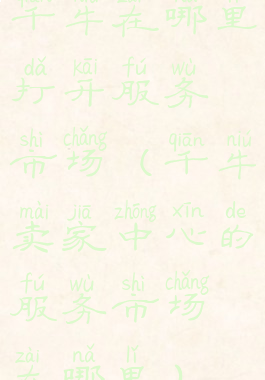 千牛在哪里
dǎ kāi fú wù
打开服务
shì chǎng qiān niú
市场（千牛
mài jiā zhōng xīn de
卖家中心的
fú wù shì chǎng
服务市场
zài nǎ lǐ
在哪里）